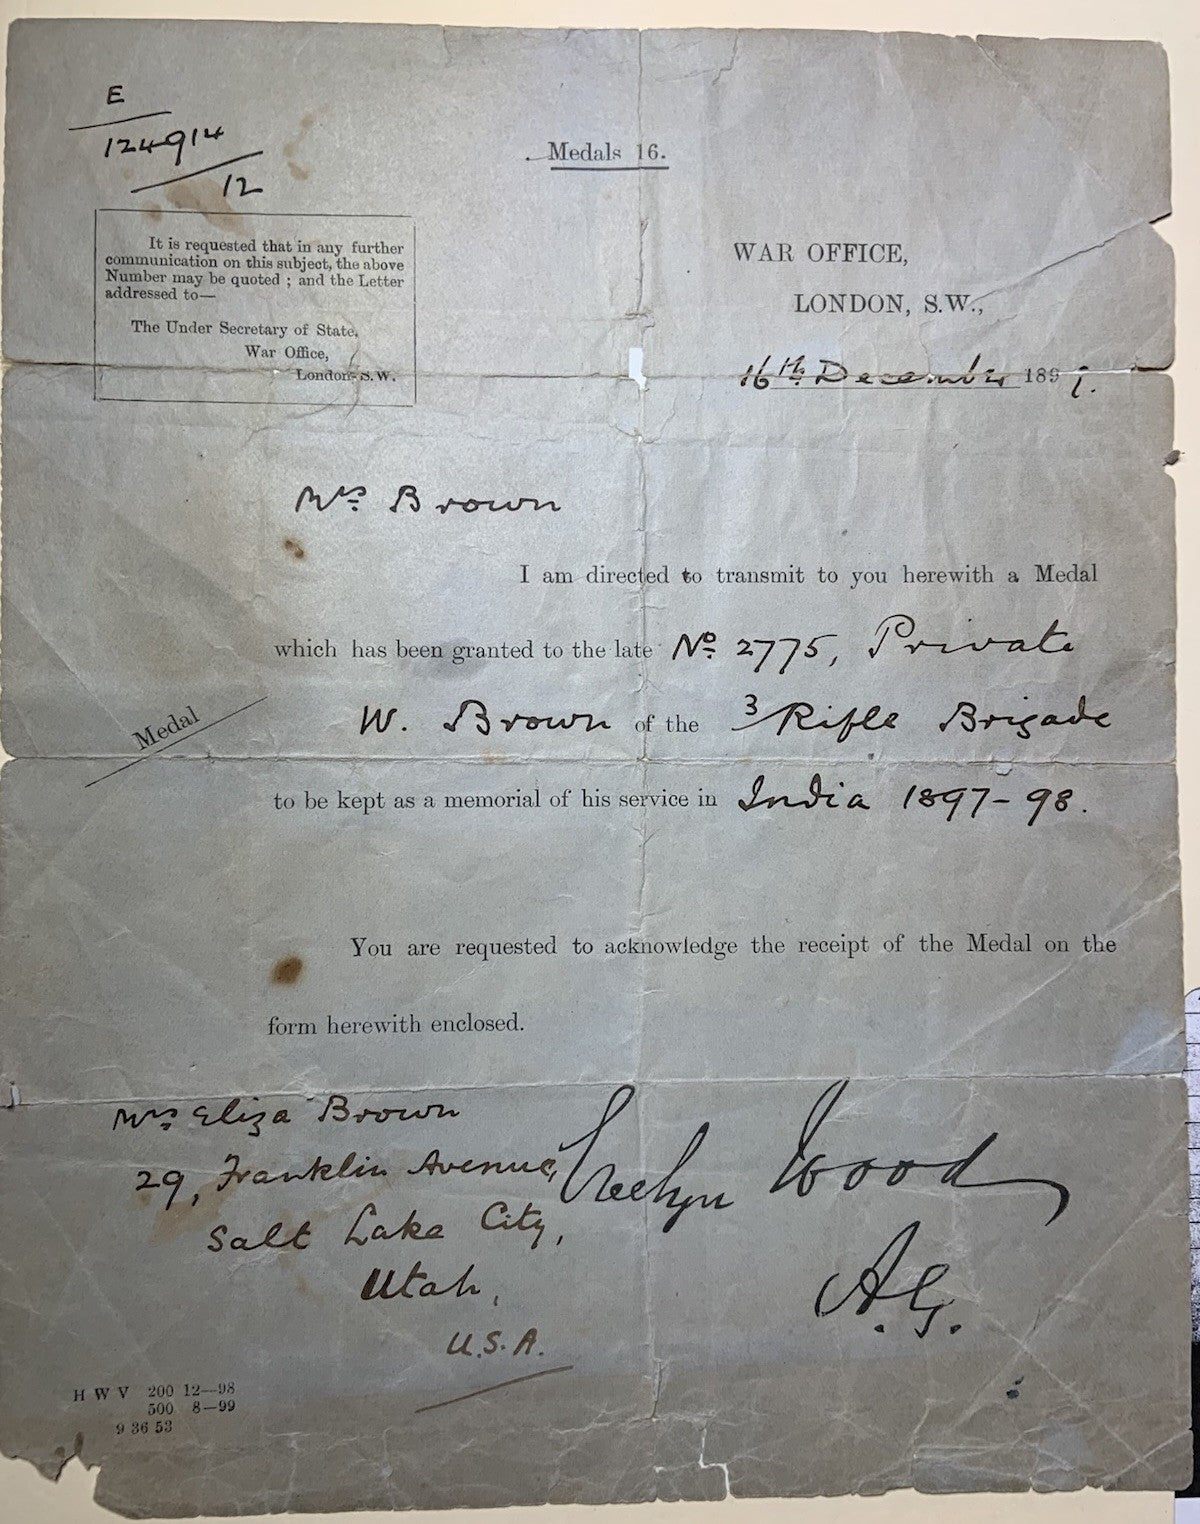 E
124914
12
Medals 16.
It is requested that in any further
communication on this subject, the above
Number may be quoted ; and the Letter
addressed to—
The Under Secretary of State,
War Office,
London S.W.
WAR OFFICE,
LONDON, S.W.,
16th December 189
Mrs Brown
I am directed to transmit to you herewith a Medal
which has been granted to the late No 2775, Private
Medal
W. Brown of the 3/Rifle Brigade
to be kept as a memorial of his service in India 1897-98.
You are requested to acknowledge the receipt of the Medal on the
form herewith enclosed.
Mrs Eliza Brown
29, Franklin Avenue,
Salt Lake City,
Utah,
U.S.A.
Evelyn Wood
A.G.
H W V 200 12—98
500 8—99
9 36 53